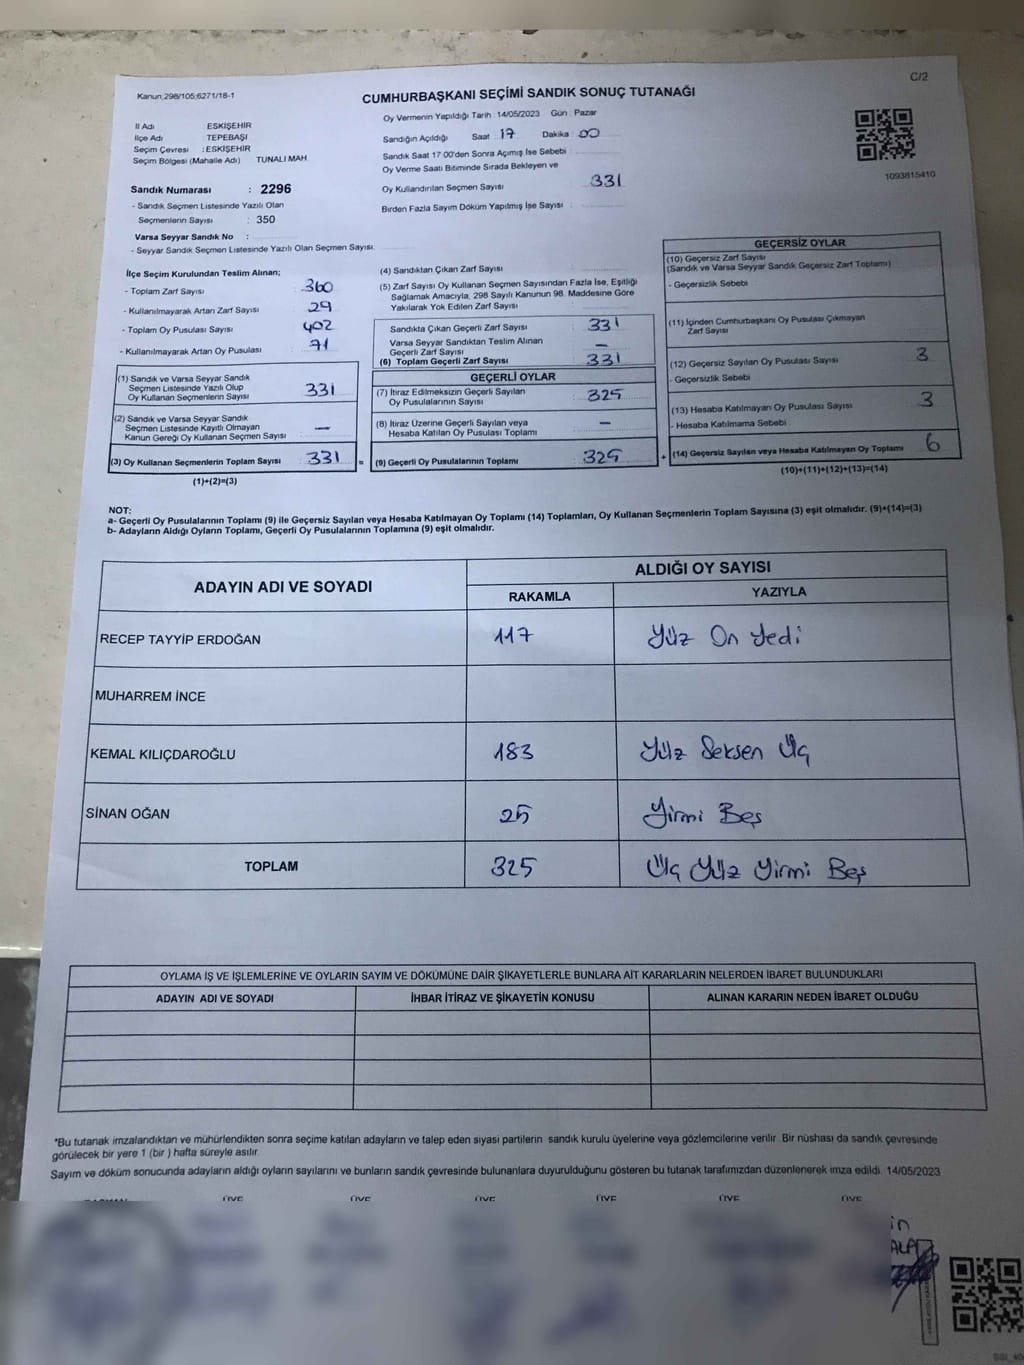 C/2
Kanun;298/105;6271/18-1
CUMHURBAŞKANI SEÇİMİ SANDIK SONUÇ TUTANAĞI
Oy Vermenin Yapıldığı Tarih :14/05/2023 Gün : Pazar
İl Adı : ESKİŞEHİR
İlçe Adı : TEPEBAŞI
Seçim Çevresi : ESKİŞEHİR
Seçim Bölgesi (Mahalle Adı) TUNALI MAH.
Sandığın Açıldığı Saat : 17 Dakika : 00
Sandık Saat 17:00'den Sonra Açımış İse Sebebi :
Oy Verme Saati Bitiminde Sırada Bekleyen ve
Oy Kullandırılan Seçmen Sayısı : 331
Birden Fazla Sayım Döküm Yapılmış İse Sayısı :
1093815410
Sandık Numarası : 2296
- Sandık Seçmen Listesinde Yazılı Olan
Seçmenlerin Sayısı : 350
Varsa Seyyar Sandık No :
- Seyyar Sandık Seçmen Listesinde Yazılı Olan Seçmen Sayısı:
İlçe Seçim Kurulundan Teslim Alınan;
- Toplam Zarf Sayısı : 360
- Kullanılmayarak Artan Zarf Sayısı : 29
- Toplam Oy Pusulası Sayısı : 402
- Kullanılmayarak Artan Oy Pusulası : 71
(1) Sandık ve Varsa Seyyar Sandık
Seçmen Listesinde Yazılı Olup
Oy Kullanan Seçmenlerin Sayısı : 331
(2) Sandık ve Varsa Seyyar Sandık
Seçmen Listesinde Kayıtlı Olmayan
Kanun Gereği Oy Kullanan Seçmen Sayısı : —
(3) Oy Kullanan Seçmenlerin Toplam Sayısı : 331
(1)+(2)=(3)
(4) Sandıktan Çıkan Zarf Sayısı :
(5) Zarf Sayısı Oy Kullanan Seçmen Sayısından Fazla İse, Eşitliği
Sağlamak Amacıyla, 298 Sayılı Kanunun 98. Maddesine Göre
Yakılarak Yok Edilen Zarf Sayısı :
Sandıkta Çıkan Geçerli Zarf Sayısı : 331
Varsa Seyyar Sandıktan Teslim Alınan
Geçerli Zarf Sayısı : —
(6) Toplam Geçerli Zarf Sayısı : 331
GEÇERLİ OYLAR
(7) İtiraz Edilmeksizin Geçerli Sayılan
Oy Pusulalarının Sayısı : 325
(8) İtiraz Üzerine Geçerli Sayılan veya
Hesaba Katılan Oy Pusulası Toplamı : —
= (9) Geçerli Oy Pusulalarının Toplamı : 325
GEÇERSİZ OYLAR
(10) Geçersiz Zarf Sayısı
(Sandık ve Varsa Seyyar Sandık Geçersiz Zarf Toplamı)
- Geçersizlik Sebebi
(11) İçinden Cumhurbaşkanı Oy Pusulası Çıkmayan
Zarf Sayısı
(12) Geçersiz Sayılan Oy Pusulası Sayısı 3
- Geçersizlik Sebebi
(13) Hesaba Katılmayan Oy Pusulası Sayısı 3
- Hesaba Katılmama Sebebi
+ (14) Geçersiz Sayılan veya Hesaba Katılmayan Oy Toplamı 6
(10)+(11)+(12)+(13)=(14)
NOT:
a- Geçerli Oy Pusulalarının Toplamı (9) ile Geçersiz Sayılan veya Hesaba Katılmayan Oy Toplamı (14) Toplamları, Oy Kullanan Seçmenlerin Toplam Sayısına (3) eşit olmalıdır. (9)+(14)=(3)
b- Adayların Aldığı Oyların Toplamı, Geçerli Oy Pusulalarının Toplamına (9) eşit olmalıdır.
ADAYIN ADI VE SOYADI
ALDIĞI OY SAYISI
RAKAMLA YAZIYLA
RECEP TAYYİP ERDOĞAN 117 Yüz On Yedi
MUHARREM İNCE
KEMAL KILIÇDAROĞLU 183 Yüz Seksen Üç
SİNAN OĞAN 25 Yirmi Beş
TOPLAM 325 Üç Yüz Yirmi Beş
OYLAMA İŞ VE İŞLEMLERİNE VE OYLARIN SAYIM VE DÖKÜMÜNE DAİR ŞİKAYETLERLE BUNLARA AİT KARARLARIN NELERDEN İBARET BULUNDUKLARI
ADAYIN ADI VE SOYADI İHBAR İTİRAZ VE ŞİKAYETİN KONUSU ALINAN KARARIN NEDEN İBARET OLDUĞU
*Bu tutanak imzalandıktan ve mühürlendikten sonra seçime katılan adayların ve talep eden siyasi partilerin sandık kurulu üyelerine veya gözlemcilerine verilir. Bir nüshası da sandık çevresinde
görülecek bir yere 1 (bir ) hafta süreyle asılır.
Sayım ve döküm sonucunda adayların aldığı oyların sayılarını ve bunların sandık çevresinde bulunanlara duyurulduğunu gösteren bu tutanak tarafımızdan düzenlenerek imza edildi. 14/05/2023
ÜYE ÜYE ÜYE ÜYE ÜYE ÜYE